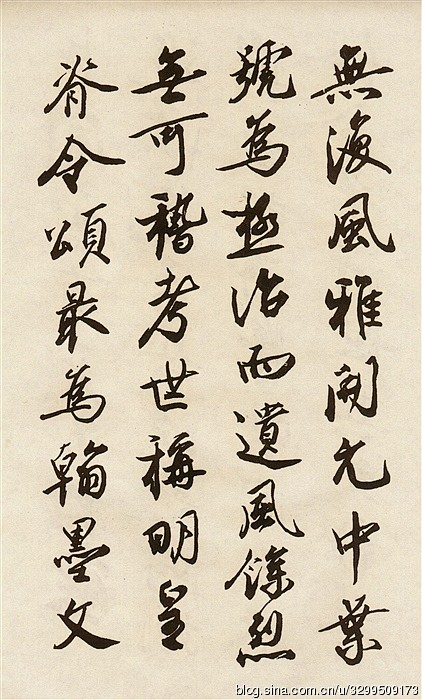 無復風雅開元中葉
號為極治而遺風餘烈
無可稽考世稱明皇
脊令頌最為翰墨文
blog.sina.com.cn/u/3299509173